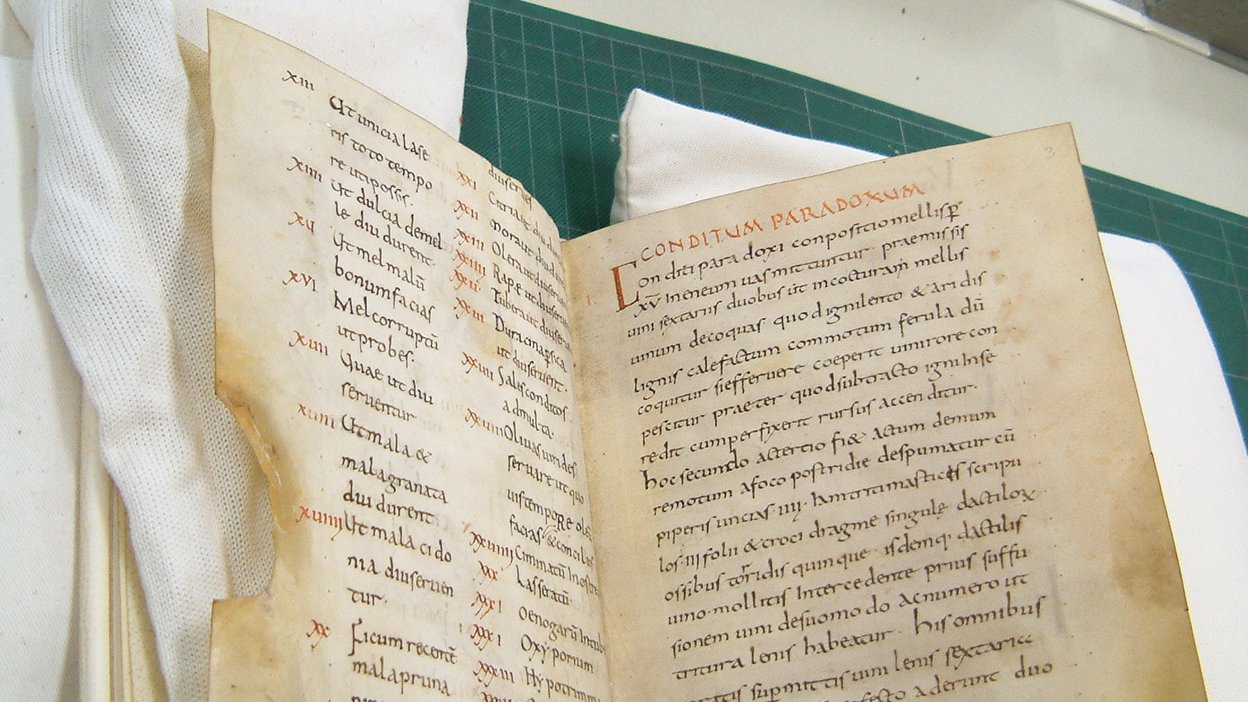 XIII Ut uncia lase
ris toto tempo
re utiposs.
XIIII Ut dulcia de mel
le diu durent
XV Ut mel malū
bonum facias
XVI Mel corruptū
ut probes.
XVII Quae ut diu
serventur
XVIII Ut mala &
mala granata
diu durent
XVIIII Ut mala cido
nia diu serven
tur.
XX Ficum recentē
mala pruna
diu serves
XXI Citria ut diu
XXII
XXIII Olera ut diu
XXIIII Rape ut diu
XXV Tubera ut diu
XXVI Duracina persica
ut diu serventur.
XXVII Sales conditos
ad multa.
XXVIII Olivas virides
servare ut quo
vis tempore oleū
facias
XXVIIII Cuminatū in ostrea
XXX Laseratū.
XXXI Oenogarū in tubera
XXXI Oxyporium
XXXIII Hypotrimma
3
CONDITUM PARADOXUM
I. Conditi paradoxi conpositio mellis p
XV in eneum vas mittuntur praemissis
vini sextariis duobus ut in cocturam mellis
vinum decoquas quod igni lento & aridis
lignis calefactum commotum ferula dū
coquitur si effervere coeperit vini rore con
pescitur praeter quod subtracto igni in se
redit cum perfrixerit rursus accenditur.
hoc secundo ac tertio fi& ac tum demum
remotum a foco postridie despumatur cū
piperis uncias IIII. Iam triti masticis scripu
los III folii & croci dragme singulę dactilor
ossibus torridis quinque isdemq. dactilis
vino mollitis intercedente prius suffu
sione vini de suo modo ac numero ut
tritura lenis habeatur. his omnibus
paratis supermittis vini lenis sextaria
aderunt duo